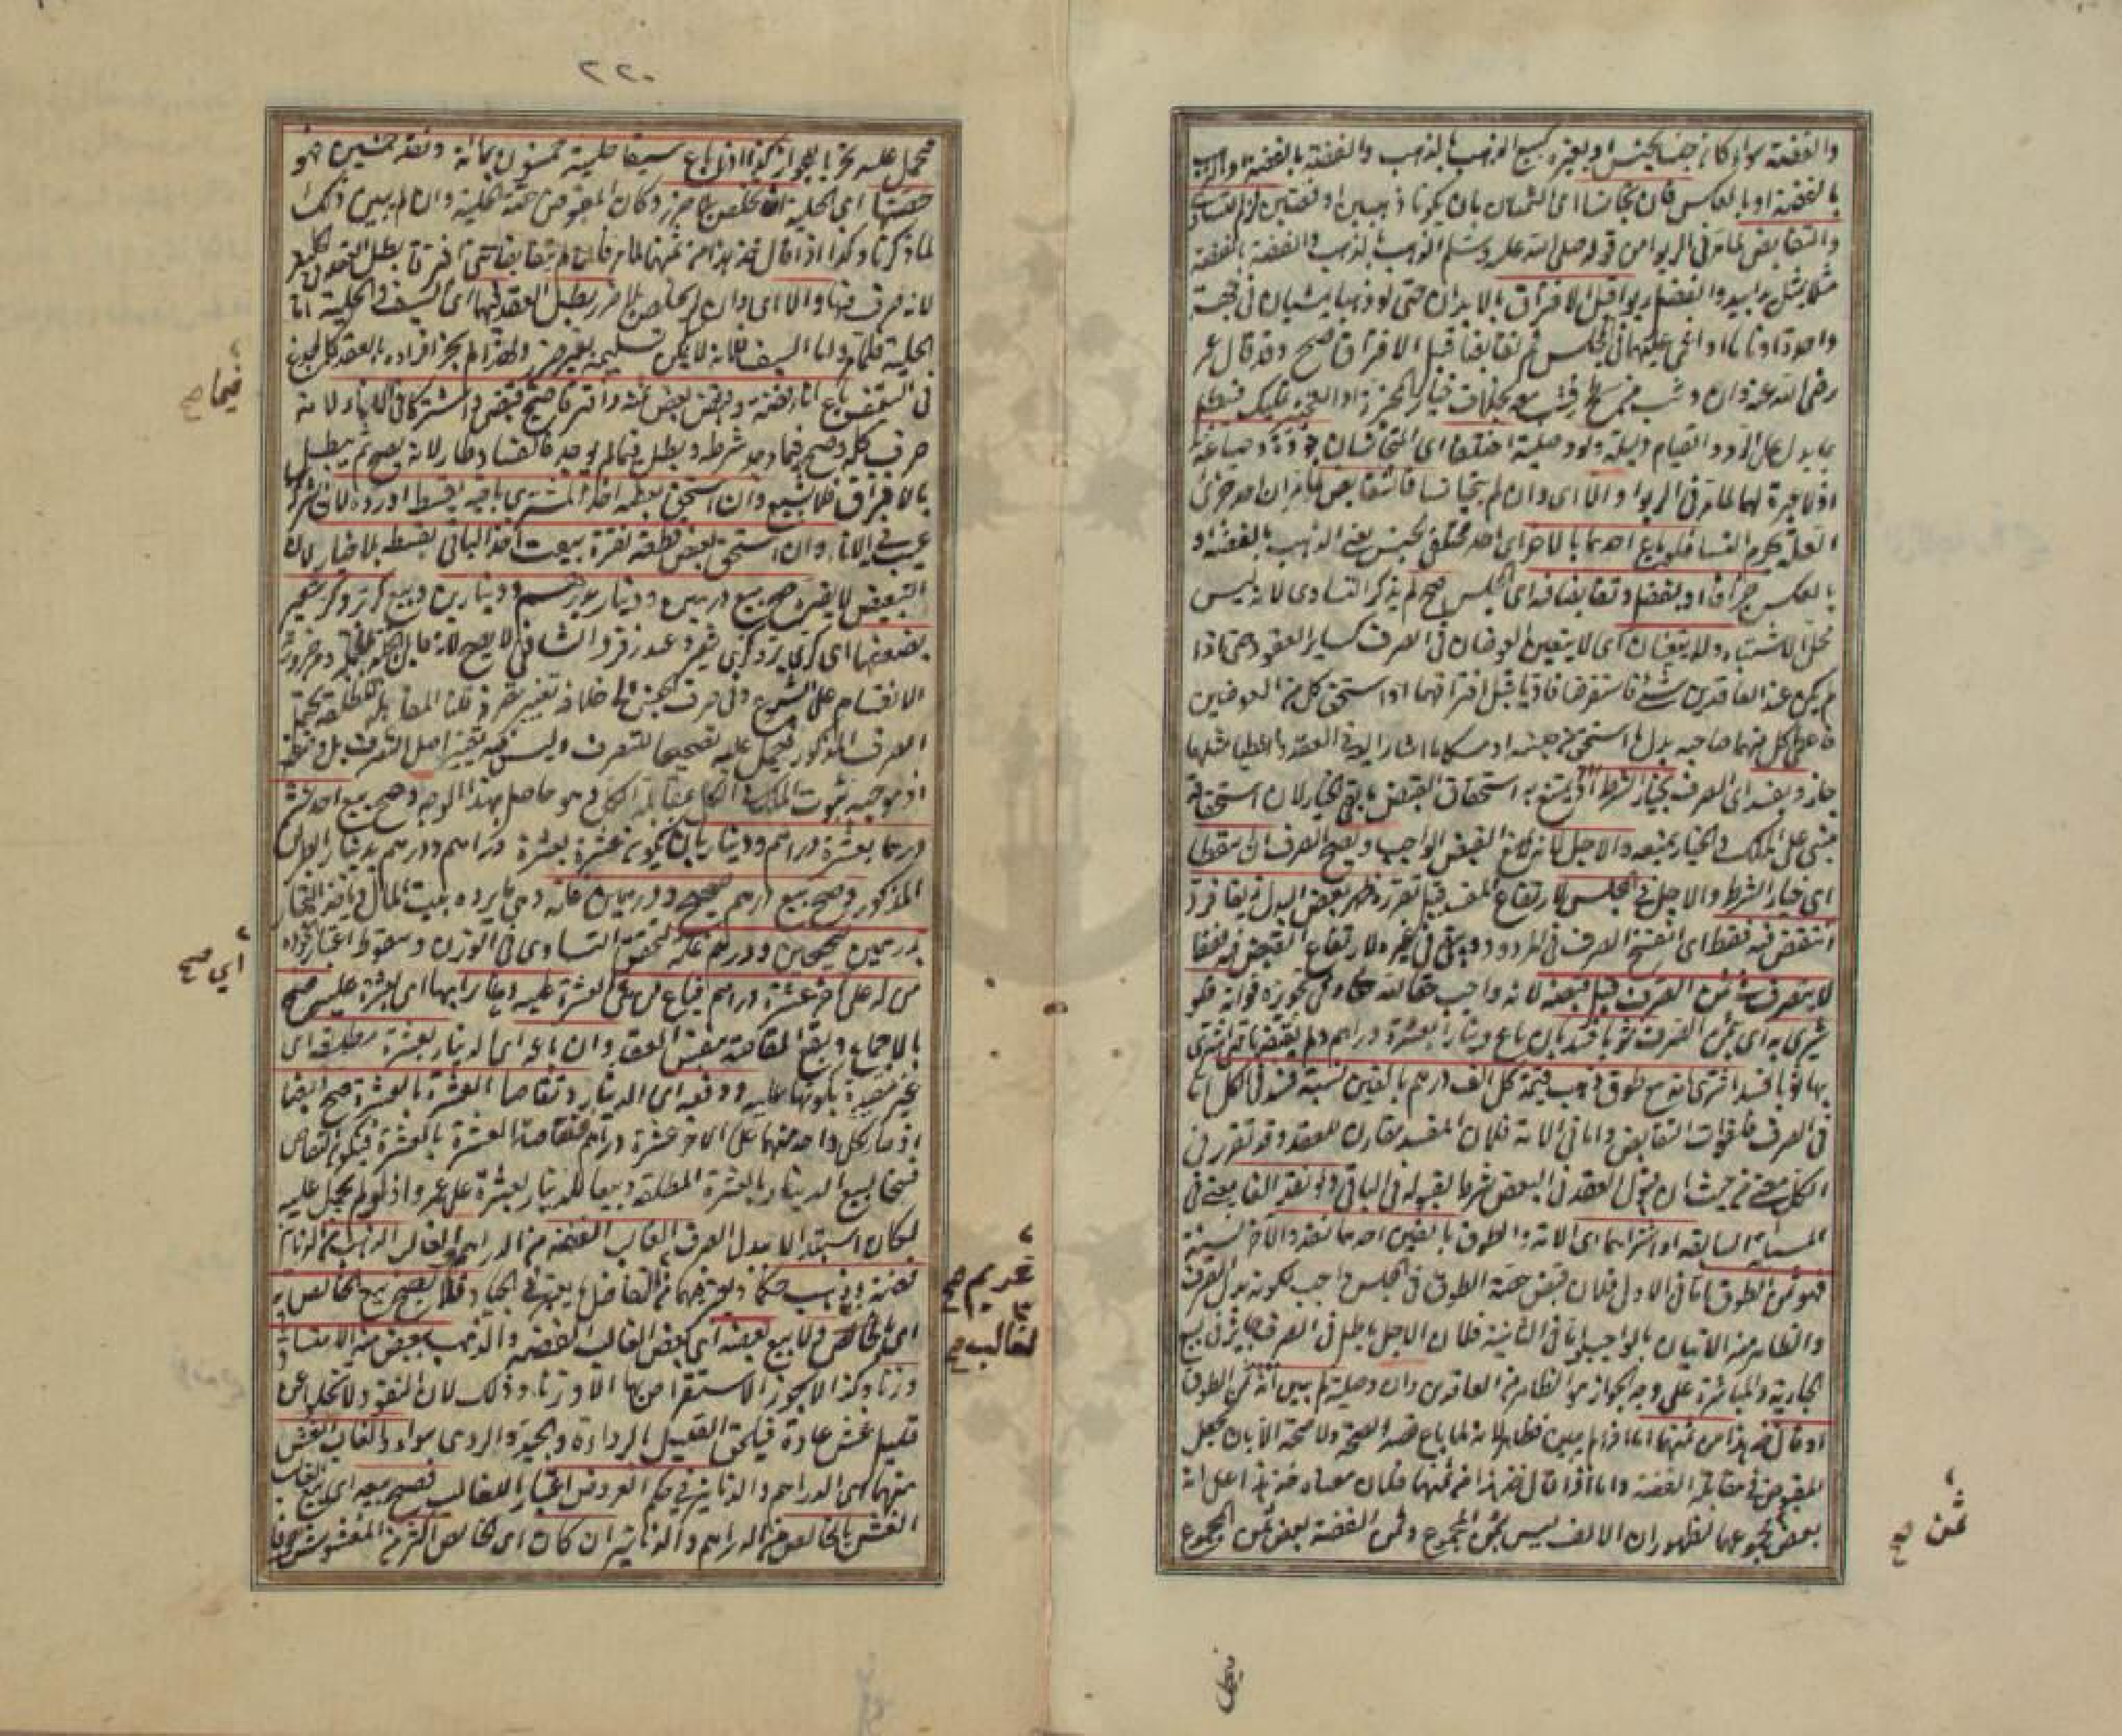 والفضة سواء كانا جنسا بجنس او بغيره كبيع الذهب بالذهب والفضة بالفضة او الذهب
بالفضة او بالعكس فان تجانسا اى الثمنان بان يكونا ذهبين او فضتين لزم التساوى
والتقابض لما مر فى الربوا من قوله صلى الله عليه وسلم الذهب بالذهب والفضة بالفضة
مثلا بمثل يدا بيد والفضل ربوا قبل الافتراق بالابدان حتى لو ذهبا يمشيان فى جهة
واحدة او ناما او اغمى عليهما فى المجلس ثم تقابضا قبل الافتراق صح وقد قال عمر
رضى الله عنه وان وثب من سطح فثب معه بخلاف خيار المخيرة اذ التخيير تمليك فيبطل
بما يدل على الرد والقيام دليله ولو وصلية اختلفا اى المتجانسان جودة وصياغة
اذ لا عبرة لهما لما مر فى الربوا والا اى وان لم يتجانسا فالتقابض لما مر ان احد جزئى
العلة يحرم النسا فلو باع احدهما بالاخر اى احد مختلفى الجنس يعنى الذهب بالفضة او
بالعكس جزافا او بفضل وتقابضا فيه اى المجلس صح لم يذكر التساوى لانه ليس
محل الاشتباه ولا يتعينان اى لا يتعين العوضان فى الصرف كسائر العقود حتى اذا
لم يكن عند العاقدين شئ فاستقرضا فاديا قبل افتراقهما او استحق كل من العوضين
فاعطى كل منهما صاحبه بدل ما استحق من جنسه او امسكا ما اشارا اليه فى العقد واعطيا مثلهما
جاز ويفسد اى الصرف بخيار الشرط اذ يمتنع به استحقاق القبض ما بقى الخيار لان استحقاقه
مبنى على الملك والخيار يمنعه والاجل لانه مانع القبض الواجب ويصح الصرف ان اسقطا
اى خيار الشرط والاجل فى المجلس لارتفاع المفسد قبل تقرره ظهر بعض البدل زيفا فرد
انتقض فيه فقط اى انفسخ الصرف فى المردود ويبقى فى غيره لارتفاع القبض فيه فقط
لا يتصرف فى ثمن الصرف قبل قبضه لانه واجب حقا لله تعالى وفى تجويزه فواته فلو
شرى به اى بثمن الصرف ثوبا فسد بان باع دينارا بعشرة دراهم ولم يقبضها حتى اشترى
بها ثوبا فسد اشترى امة مع طوق ذهب قيمة كل الف درهم بالفين نسيئة فسد فى الكل اما
فى الصرف فلفوات التقابض واما فى الامة فلان المفسد مقارن للعقد وقد تقرر فى
الكل معنى من حيث ان قبول العقد فى البعض شرط لقبوله فى الباقى ولو نقد الفا يعنى فى
المسئلة السابقة او اشتراهما اى الامة والطوق بالفين احدهما نقد والآخر نسيئة
فهو ثمن الطوق اما فى الاول فلان قبض حصة الطوق فى المجلس واجب لكونه بدل الصرف
والظاهر منه الاتيان بالواجب واما فى الثانية فلان الاجل باطل فى الصرف جائز فى بيع
الجارية والمباشرة على وجه الجواز هو الظاهر من العاقدين وان وصلية لم يبين انه ثمن الطوق
او قال خذ هذا من ثمنهما اما اذا لم يبين فظاهر لانه لما باع قصد الصحة ولا صحة الا بان يجعل
المقبوض فى مقابلة الفضة واما اذا قال خذ هذا من ثمنهما فلان معناه خذ هذا على انه
بعض مجموعهما لظهور ان الالف ليس ثمن المجموع وثمن الفضة بعض ثمن المجموع
ثمن صح
فيحمل
٢٢٠
فيحمل عليه تحريا للجواز كذا اذا باع سيفا حليته خمسون بمائة ونقد خمسين فهو
حصتها اى الحلية ان تخلص بلا ضرر وكان المقبوض حصة الحلية وان لم يبين ذلك
لما ذكرنا وكذا اذا قال خذ هذا من ثمنهما لما مر فان لم يتقابضا حتى افترقا بطل العقد
لانه صرف فيها والا اى وان لم يخلص بلا ضرر بطل العقد فيهما اى السيف والحلية اما
الحلية فلما مر واما السيف فلانه لا يمكن تسليمه بغير ضرر ولهذا لم يجز افراده بالعقد كالجذع
فى السقف باع اناء فضة وقبض بعض ثمنه وافترقا صح فيما قبض واشتركا فى الاناء لانه
صرف كله وصح فيما وجد شرطه وبطل فيما لم يوجد فالفساد طار لانه يصح ثم يبطل
بالافتراق فلا يشيع وان استحق بعضه اخذ المشترى باقيه بقسطه او رده لان الشركة
عيب فى الاناء وان استحق بعض قطعة نقرة بيعت اخذ الباقى بقسطه بلا خيار لان
التبعيض لا يضره صح بيع درهمين ودينار بدرهم ودينارين وبيع كر بر وكر شعير
بضعفهما اى كرى بر وكرى شعير وعند زفر والشافعى لا يصح لانه قابل الجملة بالجملة ومن ضرورته
الانقسام على الشيوع وفى صرف الجنس الى خلافه تغيير تصرفه قلنا المقابلة المطلقة تحتمل
الصرف المذكور فيحمل عليه تصحيحا للتصرف وليس فيه تغيير اصل التصرف بل وصفه
اذ موجبه ثبوت الملك فى الكل بمقابلة الكل وهو حاصل بهذا الوجه وصح بيع احد عشر
درهما بعشرة دراهم ودينار بان يكون عشرة بعشرة دراهم ودرهم بدينار بالطريق
المذكور وصح بيع درهم صحيح ودرهمين غلة وهى ما يرده بيت المال ويأخذه التجار
بدرهمين صحيحين ودرهم غلة لتحقق التساوى فى الوزن وسقوط اعتبار الجودة
من له على آخر عشرة دراهم فباع من عليه العشرة عليه دينارا بها اى بعشرة عليه صح
بالاجماع ويقع المقاصة بنفس العقد وان باعه اى الدينار بعشرة مطلقة اى
غير مقيدة بكونها عليه ودفعه اى الدينار وتقاصا العشرة بالعشرة صح ايضا
اذ صار لكل واحد منهما على الآخر عشرة دراهم فتقاصا العشرة بالعشرة فيكون التقاص
فسخا لبيع الدينار بالعشرة المطلقة وبيعا للدينار بعشرة على عمرو اذ لو لم يحمل عليه
لكان استبدالا ببدل الصرف الغالب الفضة من الدراهم والغالب الذهب من الدنانير
فضة وذهب حكما ويعتبر فيهما من التفاضل ما يعتبر فى الجياد فلا يصح بيع الخالص به
اى بالخالص ولا بيع بعضه اى بعض الغالب الفضة والذهب ببعض منه الا متساويا
وزنا وكذا لا يجوز الاستقراض بها الا وزنا وذلك لان النقود لا تخلو عن
قليل غش عادة فيلحق القليل بالرداءة والجيد والردى سواء والغالب الغش
منهما اى الدراهم والدنانير فى حكم العروض اعتبارا للغالب فصح بيعه اى بيع الغالب
الغش بالخالص من الدراهم والدنانير ان كان اى الخالص اكثر من المغشوش
فيما صح
أي صح
غريم صح
لغالب صح